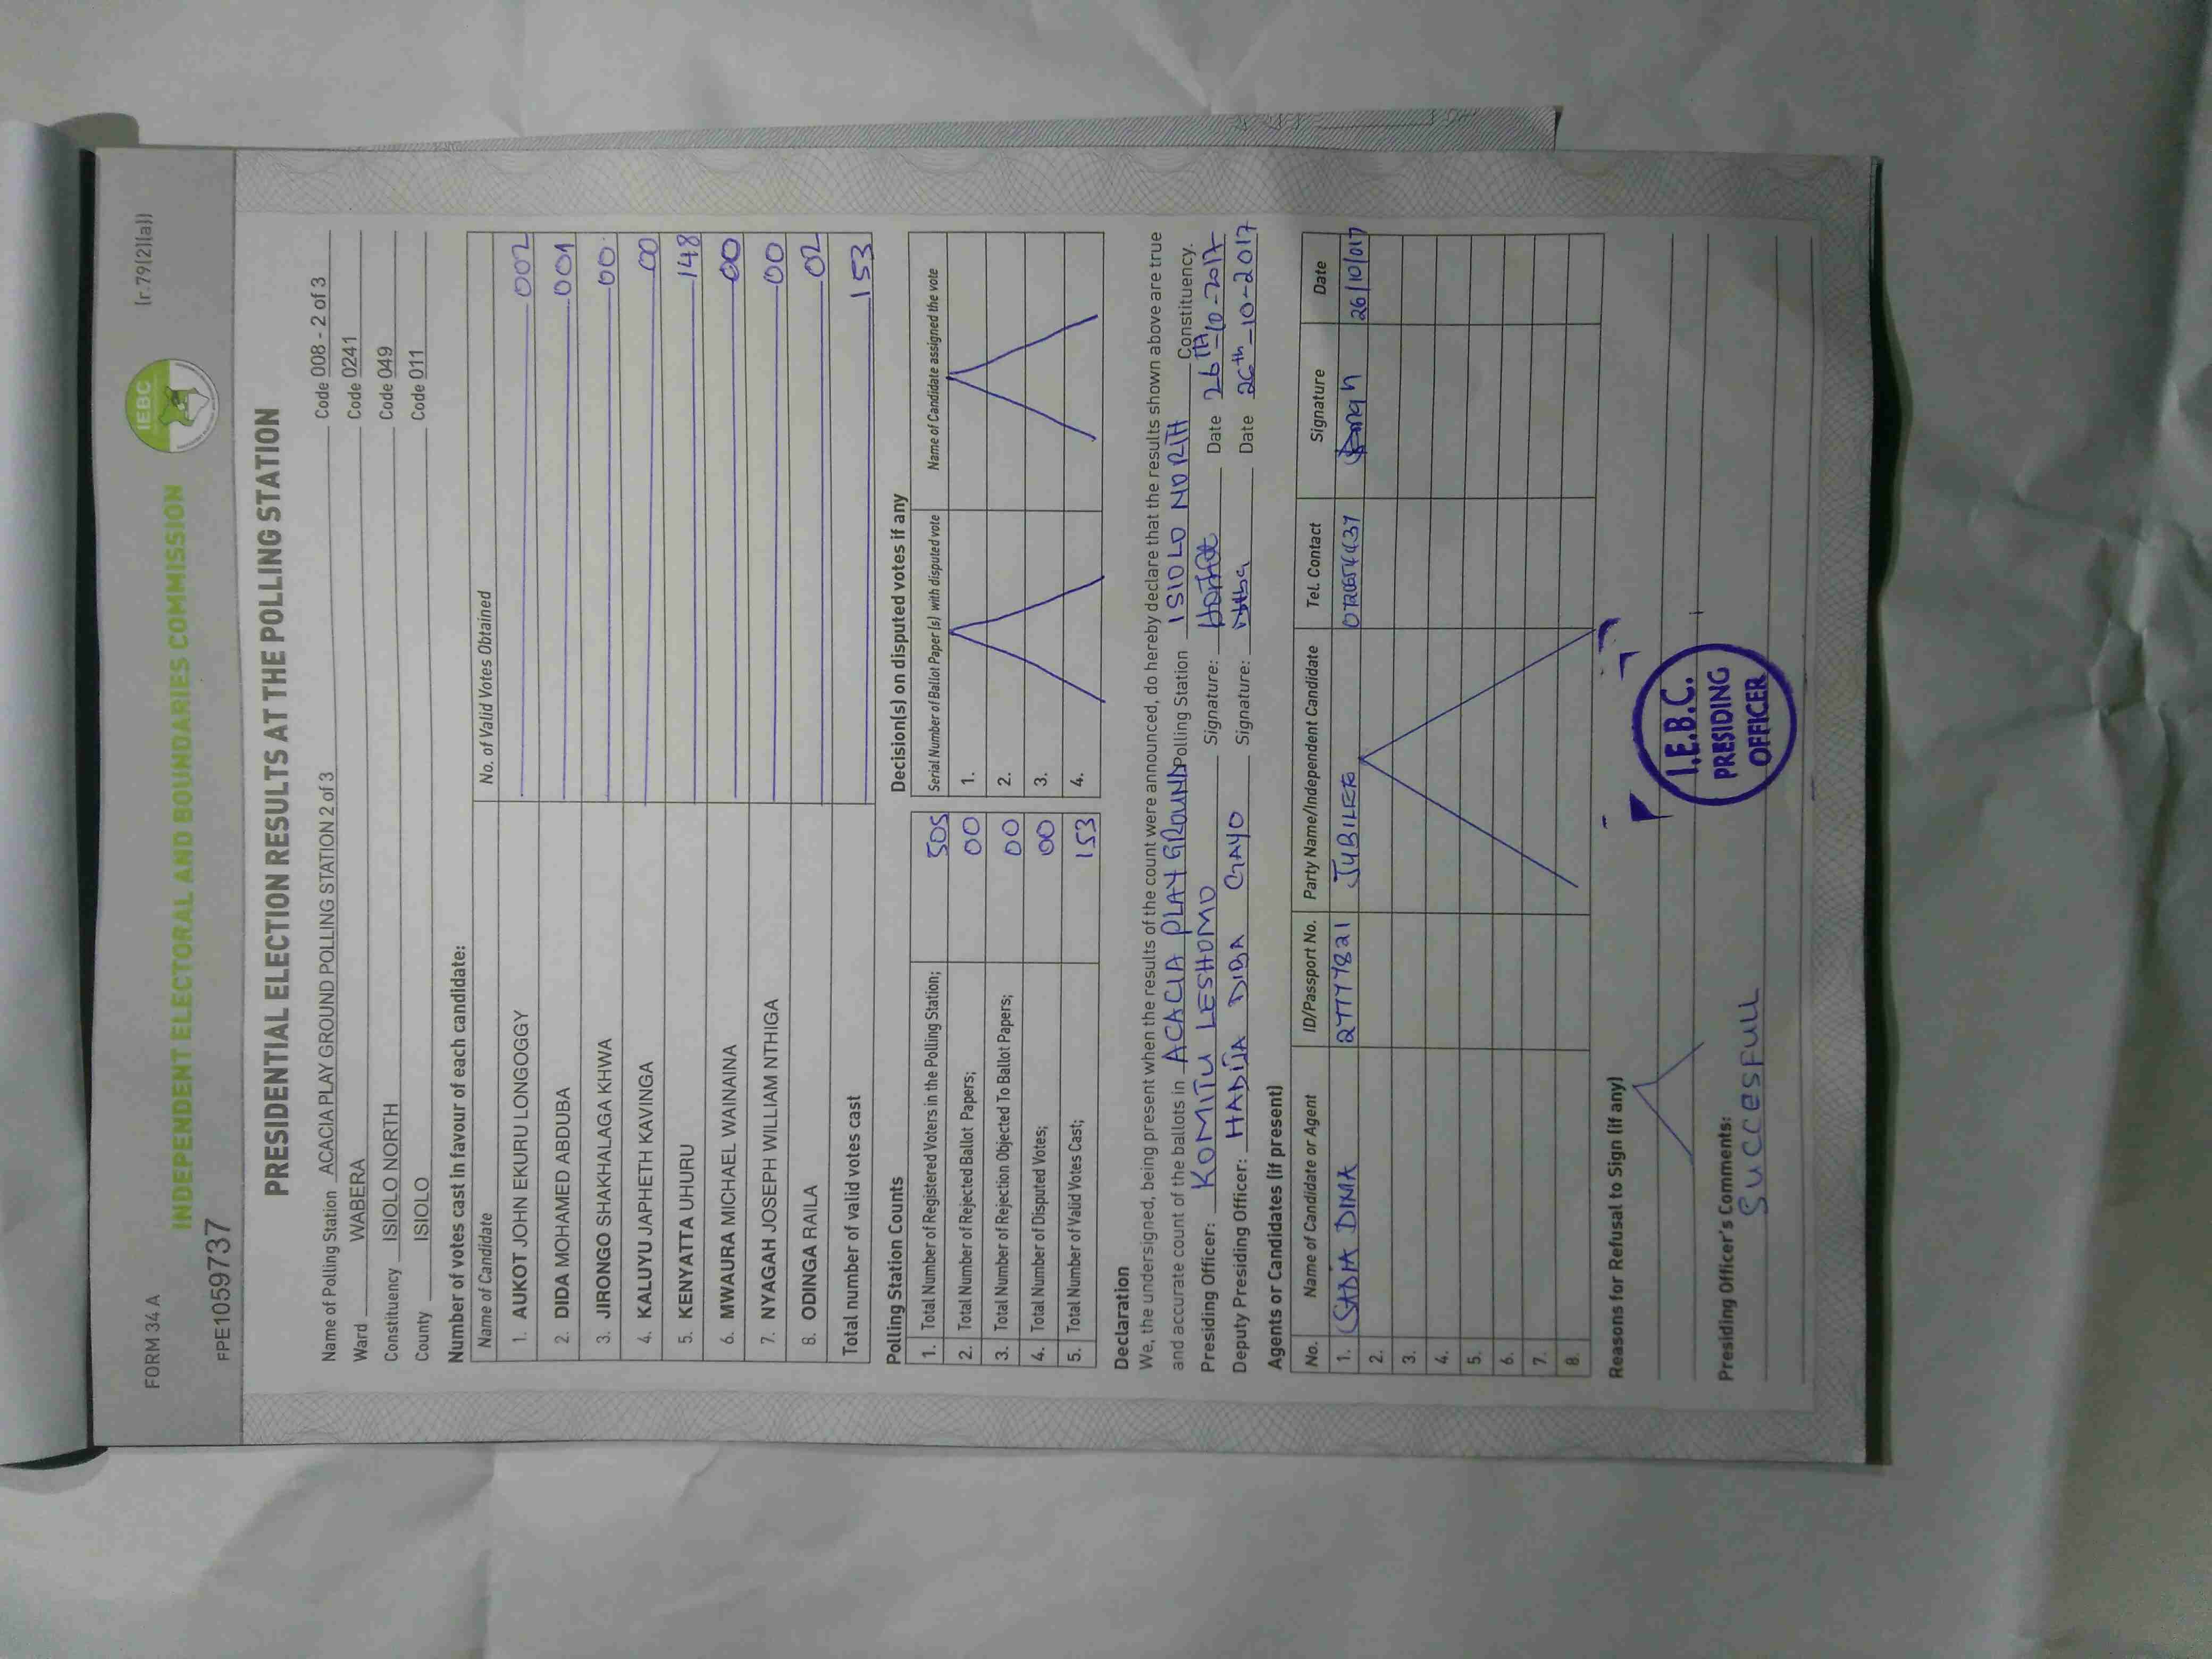 FORM 34 A
INDEPENDENT ELECTORAL AND BOUNDARIES COMMISSION
IEBC
(r.79(2)(a))
FPE1059737
PRESIDENTIAL ELECTION RESULTS AT THE POLLING STATION
Name of Polling Station ACACIA PLAY GROUND POLLING STATION 2 of 3 Code 008 - 2 of 3
Ward WABERA Code 0241
Constituency ISIOLO NORTH Code 049
County ISIOLO Code 011
Number of votes cast in favour of each candidate:
Name of Candidate No. of Valid Votes Obtained
1. AUKOT JOHN EKURU LONGOGGY 002
2. DIDA MOHAMED ABDUBA 001
3. JIRONGO SHAKHALAGA KHWA 00
4. KALUYU JAPHETH KAVINGA 00
5. KENYATTA UHURU 148
6. MWAURA MICHAEL WAINAINA 00
7. NYAGAH JOSEPH WILLIAM NTHIGA 00
8. ODINGA RAILA 02
Total number of valid votes cast 153
Polling Station Counts
1. Total Number of Registered Voters in the Polling Station; 505
2. Total Number of Rejected Ballot Papers; 00
3. Total Number of Rejection Objected To Ballot Papers; 00
4. Total Number of Disputed Votes; 00
5. Total Number of Valid Votes Cast; 153
Decision(s) on disputed votes if any
Serial Number of Ballot Paper (s) with disputed vote Name of Candidate assigned the vote
1.
2.
3.
4.
Declaration
We, the undersigned, being present when the results of the count were announced, do hereby declare that the results shown above are true
and accurate count of the ballots in ACACIA PLAY GROUND Polling Station ISIOLO NORTH Constituency.
Presiding Officer: KOMITU LESHOMO Signature: Date 26TH-10-2017
Deputy Presiding Officer: HADIJA DIBA GAYO Signature: Date 26th-10-2017
Agents or Candidates (if present)
No. Name of Candidate or Agent ID/Passport No. Party Name/Independent Candidate Tel. Contact Signature Date
1. SADIA DIMA 27777821 JUBILEE 26/10/017
2.
3.
4.
5.
6.
7.
8.
Reasons for Refusal to Sign (if any)
I.E.B.C.
PRESIDING
OFFICER
Presiding Officer's Comments:
Succesfull